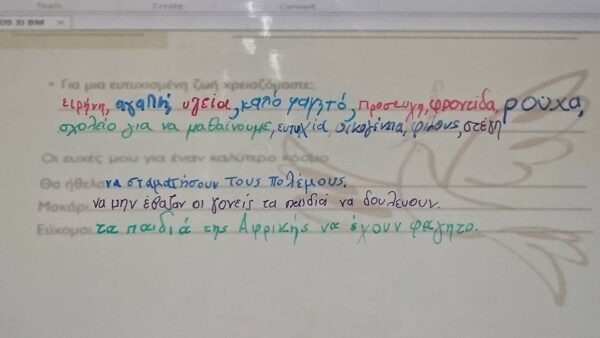 Tools Create Convert
• Για μια ευτυχισμένη ζωή χρειαζόμαστε:
ειρήνη, αγάπη, υγεία, καλό φαγητό, προσευχή, φροντίδα, ρούχα,
σχολείο για να μαθαίνουμε, ευτυχία, οικογένεια, φίλους, στέγη
Οι ευχές μου για έναν καλύτερο κόσμο
Θα ήθελα να σταματήσουν τους πολέμους.
Μακάρι να μην έβαζαν οι γονείς τα παιδιά να δουλεύουν.
Εύχομαι τα παιδιά της Αφρικής να έχουν φαγητο.